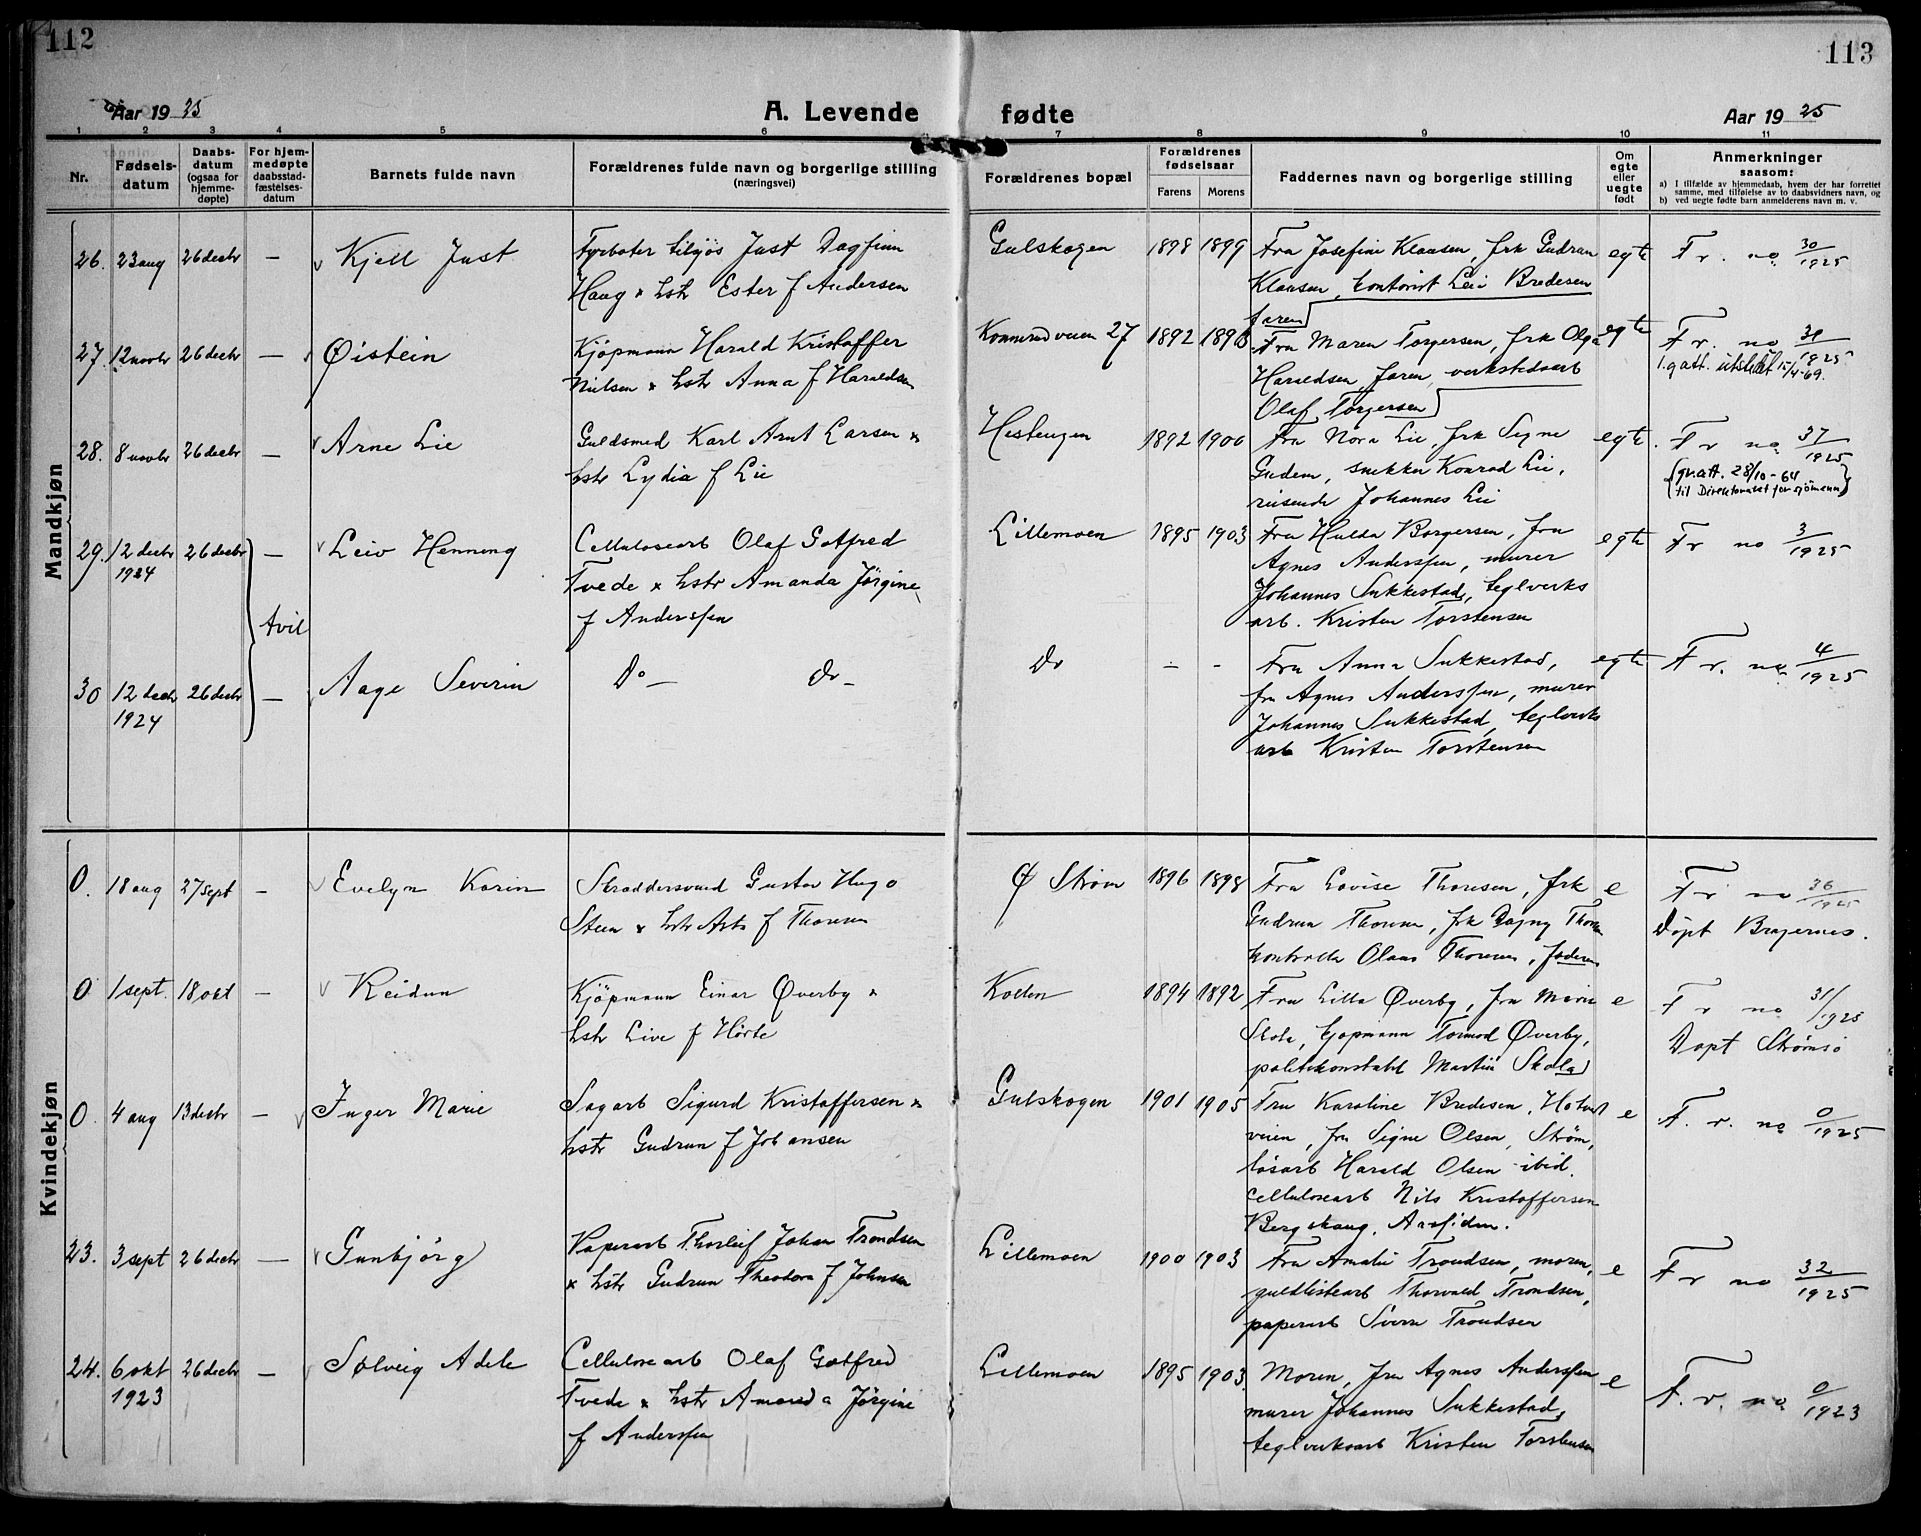 112
113
Aar 1925
A. Levende fødte
Aar 1925
1 2 3 4 5 6 7 8 9 10 11
Nr.
Fødsels-
datum
Daabs-
datum
(ogsaa for
hjemme-
døpte)
For hjem-
medøpte
daabsstad-
fæstelses-
datum
Barnets fulde navn
Forældrenes fulde navn og borgerlige stilling
(næringsvei)
Forældrenes bopæl
Forældrenes
fødselsaar
Farens Morens
Faddernes navn og borgerlige stilling
Om
egte
eller
uegte
født
Anmerkninger
saasom:
a) I tilfælde av hjemmedaab, hvem der har forrettet
samme, med tilføielse av to daabsvidners navn, og
b) ved uegte fødte barn anmelderens navn m. v.
Mandkjøn
26. 23 aug 26 decbr — Kjell Just
Fyrbøter Just Dagfinn
Haug & hstr Ester f Andersen
Gulskogen 1898 1899
Fru Josefine Klausen, frk Gudrun
Klausen, kontorist Leiv Bredesen
faren
egte F. r. no 30/1925
27. 12 novbr 26 decbr — Øistein
Kjöpmann Harald Kristoffer
Nielsen & hstr Anna f Haraldsen
Konnerudveien 27 1892
Fru Maren Torgersen, frk Olga
Haraldsen, faren, verkstedsarb
Olaf Torgersen
egte F. r. no 31/1925
1.g att. utstedt 15/4-69.
28. 8 novbr 26 decbr — Arne Lie
Guldsmed Karl Arnt Larsen &
hstr Lydia f Lie
Hestengen 1892 1900
Fru Nora Lie, frk Signe
Gudem, snekker Konrad Lie,
reisende Johannes Lie
egte. F r no 37/1925
(gr.att. 28/10-64
til Direktoratet for sjömenn)
29. 12 decbr 26 decbr — Leiv Henning
1924
Cellulosearb Olaf Gotfred
Tvede & hstr Amanda Jørgine
f Anderssen
Lillemoen 1895 1903
Fru Hulda Borgersen, fru
Agnes Anderssen, murer
Johannes Sukkestad, teglverks
arb. Kristen Torstensen
egte F r no 3/1925
tvil
30 12 decbr 26 decbr — Aage Severin
1924
Do — Do —
Do - -
Fru Anna Sukkestad,
fru Agnes Anderssen, murer
Johannes Sukkestad, teglverks
arb Kristen Torstensen
egte F r. no 4/1925
Kvindekjøn
0. 18 aug 27 sept — Evelyn Karin
Skræddersvend Gustav Hugo
Steen & hstr Asta f Thoresen
Ø Strøm 1896 1898
Fru Lovise Thoresen, frk
Gudrun Thoresen, frk Dagny Thoresen
Olaus Thoresen, faderen
e F r no 36/1925
Døpt Bragernes.
0 1 sept. 18 okt — Reidun
Kjöpmann Einar Øverby &
hstr Live f Hörte
Kollen 1894 1892
Fru Lilla Øverby, fru Marie
Skola, kjøpmann Tormod Øverby,
politikonstabel Martin Skola
e F r no 31/1925
Døpt Strømsø
0. 4 aug 13 decbr — Inger Marie
Sagarb Sigurd Kristoffersen &
hstr Gudrun f Johansen
Gulskogen 1901 1905
Fru Karoline Bredesen, Hotvet
veien, fru Signe Olsen, Strøm,
løsarb Harald Olsen ibid.
Cellulosearb Nils Kristoffersen
Bergshaug, Aassiden.
e F. r. no 0/1925
23. 3 sept 26 decbr — Gunbjörg
Papirarb Thorleif Johan Trondsen
& hstr Gudrun Theodora f Johnsen
Lillemoen 1900 1903
Fru Amalie Trondsen, moren,
guldlistearb Thorvald Trondsen,
papirarb Sverre Trondsen
e F r no 32/1925
24. 6 okt 26 decbr — Sølveig Adele
1923
Cellulosearb Olaf Gotfred
Tvede & hstr Amanda Jørgine
f Anderssen
Lillemoen 1895 1903.
Moren, fru Agnes Anderssen
murer Johannes Sukkestad,
teglverksarb Kristen Torstensen
e F. r. no 0/1923